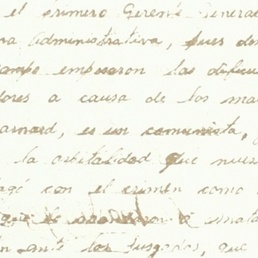 el primero Gerente Genera
ra administrativa, pues don
campo empesaron las dificu
dores a causa de los ma
arnard, es un comunista,
la orbitalidad que nues
agó con el crimen como
ante los jusgados, que